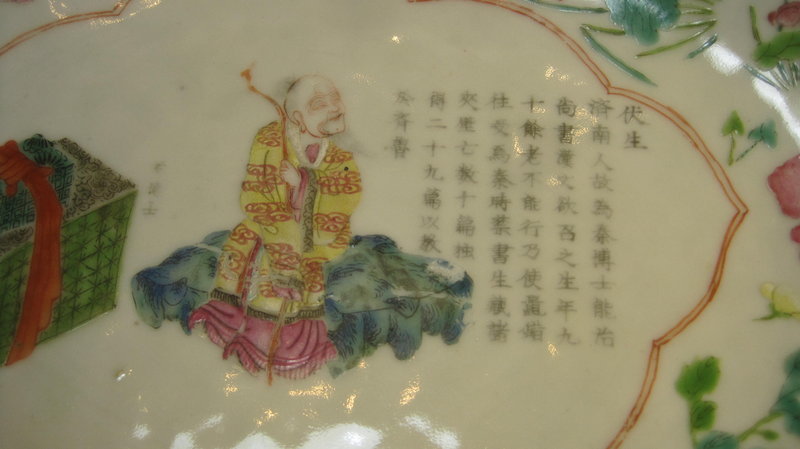 伏生
濟南人故為秦博士能治
尚書漢文欲召之生年九
十餘老不能行乃使鼂錯
往受為秦時禁書生藏諸
夾壁亡數十篇獨
得二十九篇以教
於齊魯